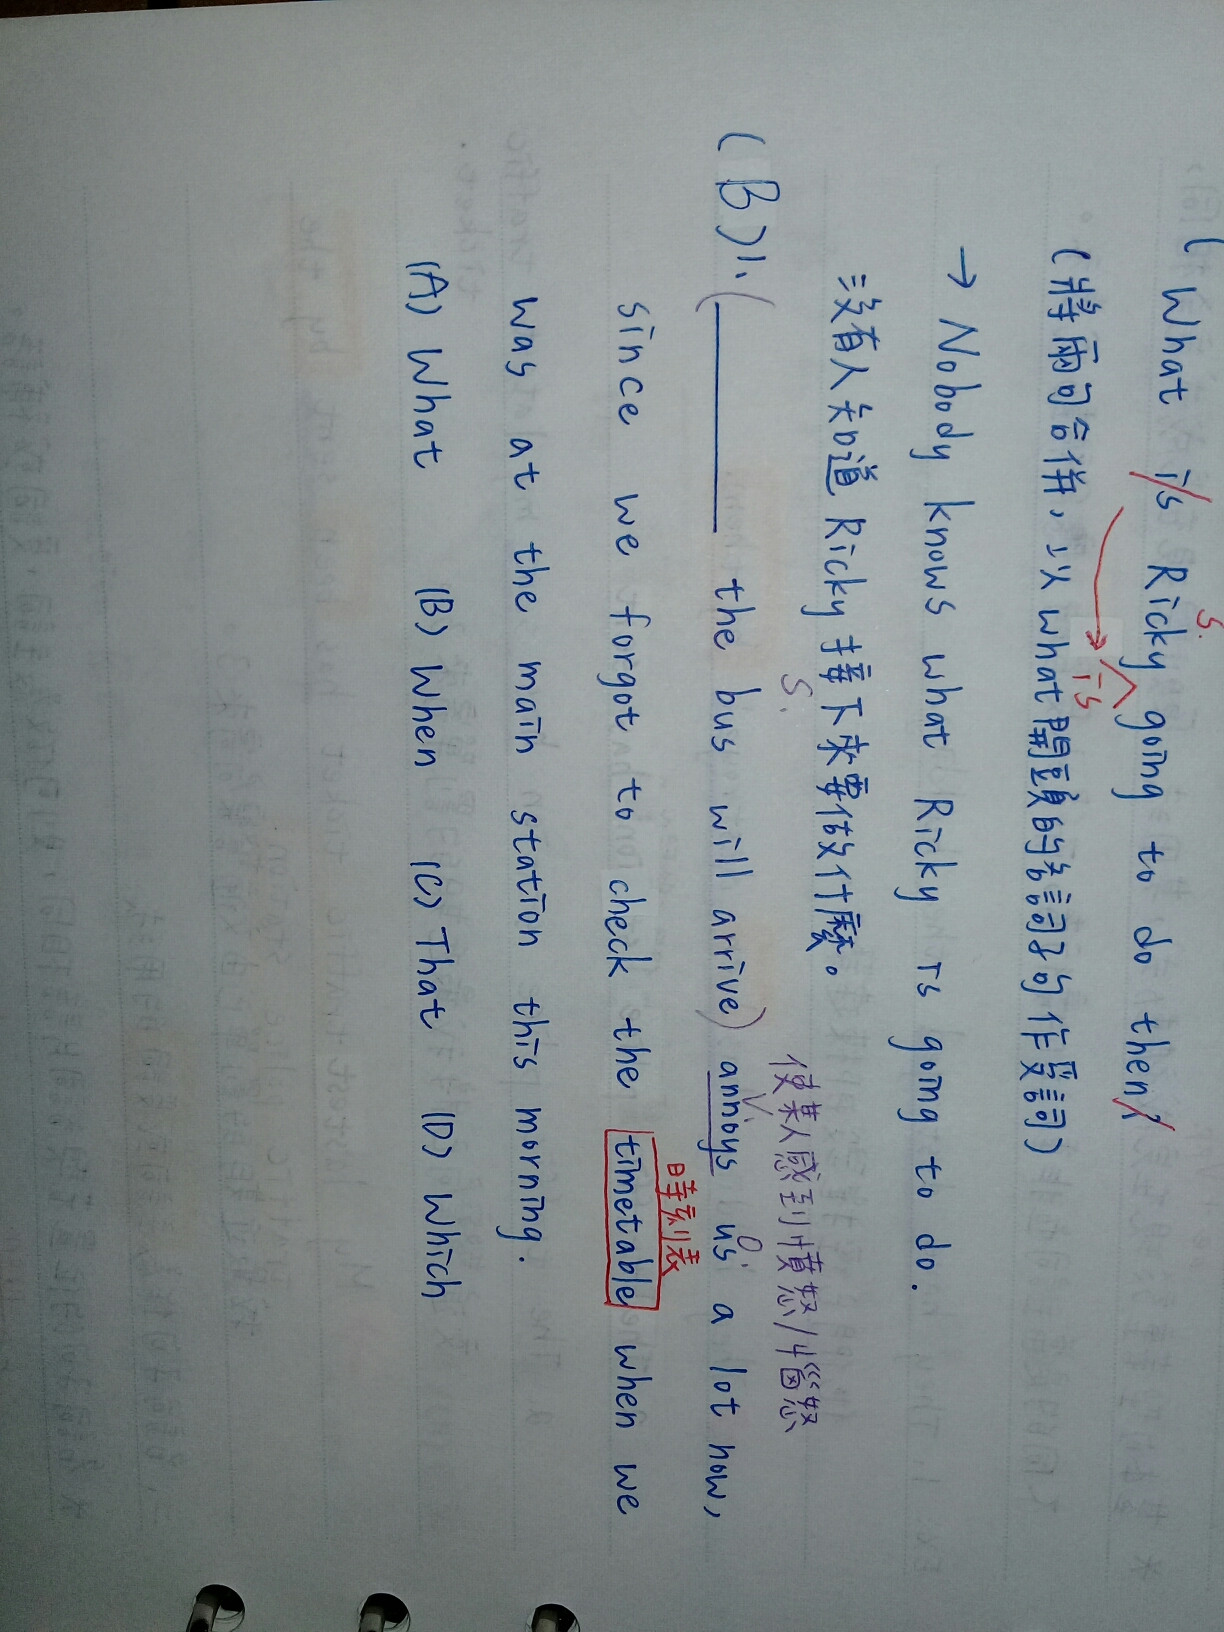 ( What is Ricky going to do then?
S.
is
(將兩句合併，以what開頭的名詞子句作受詞)
→ Nobody knows what Ricky is going to do.
沒有人知道 Ricky 接下來要做什麼。
S. 使某人感到憤怒/惱怒
(B)1. (______ the bus will arrive) annoys us a lot now,
V. O.
時刻表
since we forgot to check the timetable when we
was at the main station this morning.
(A) What (B) When (C) That (D) Which